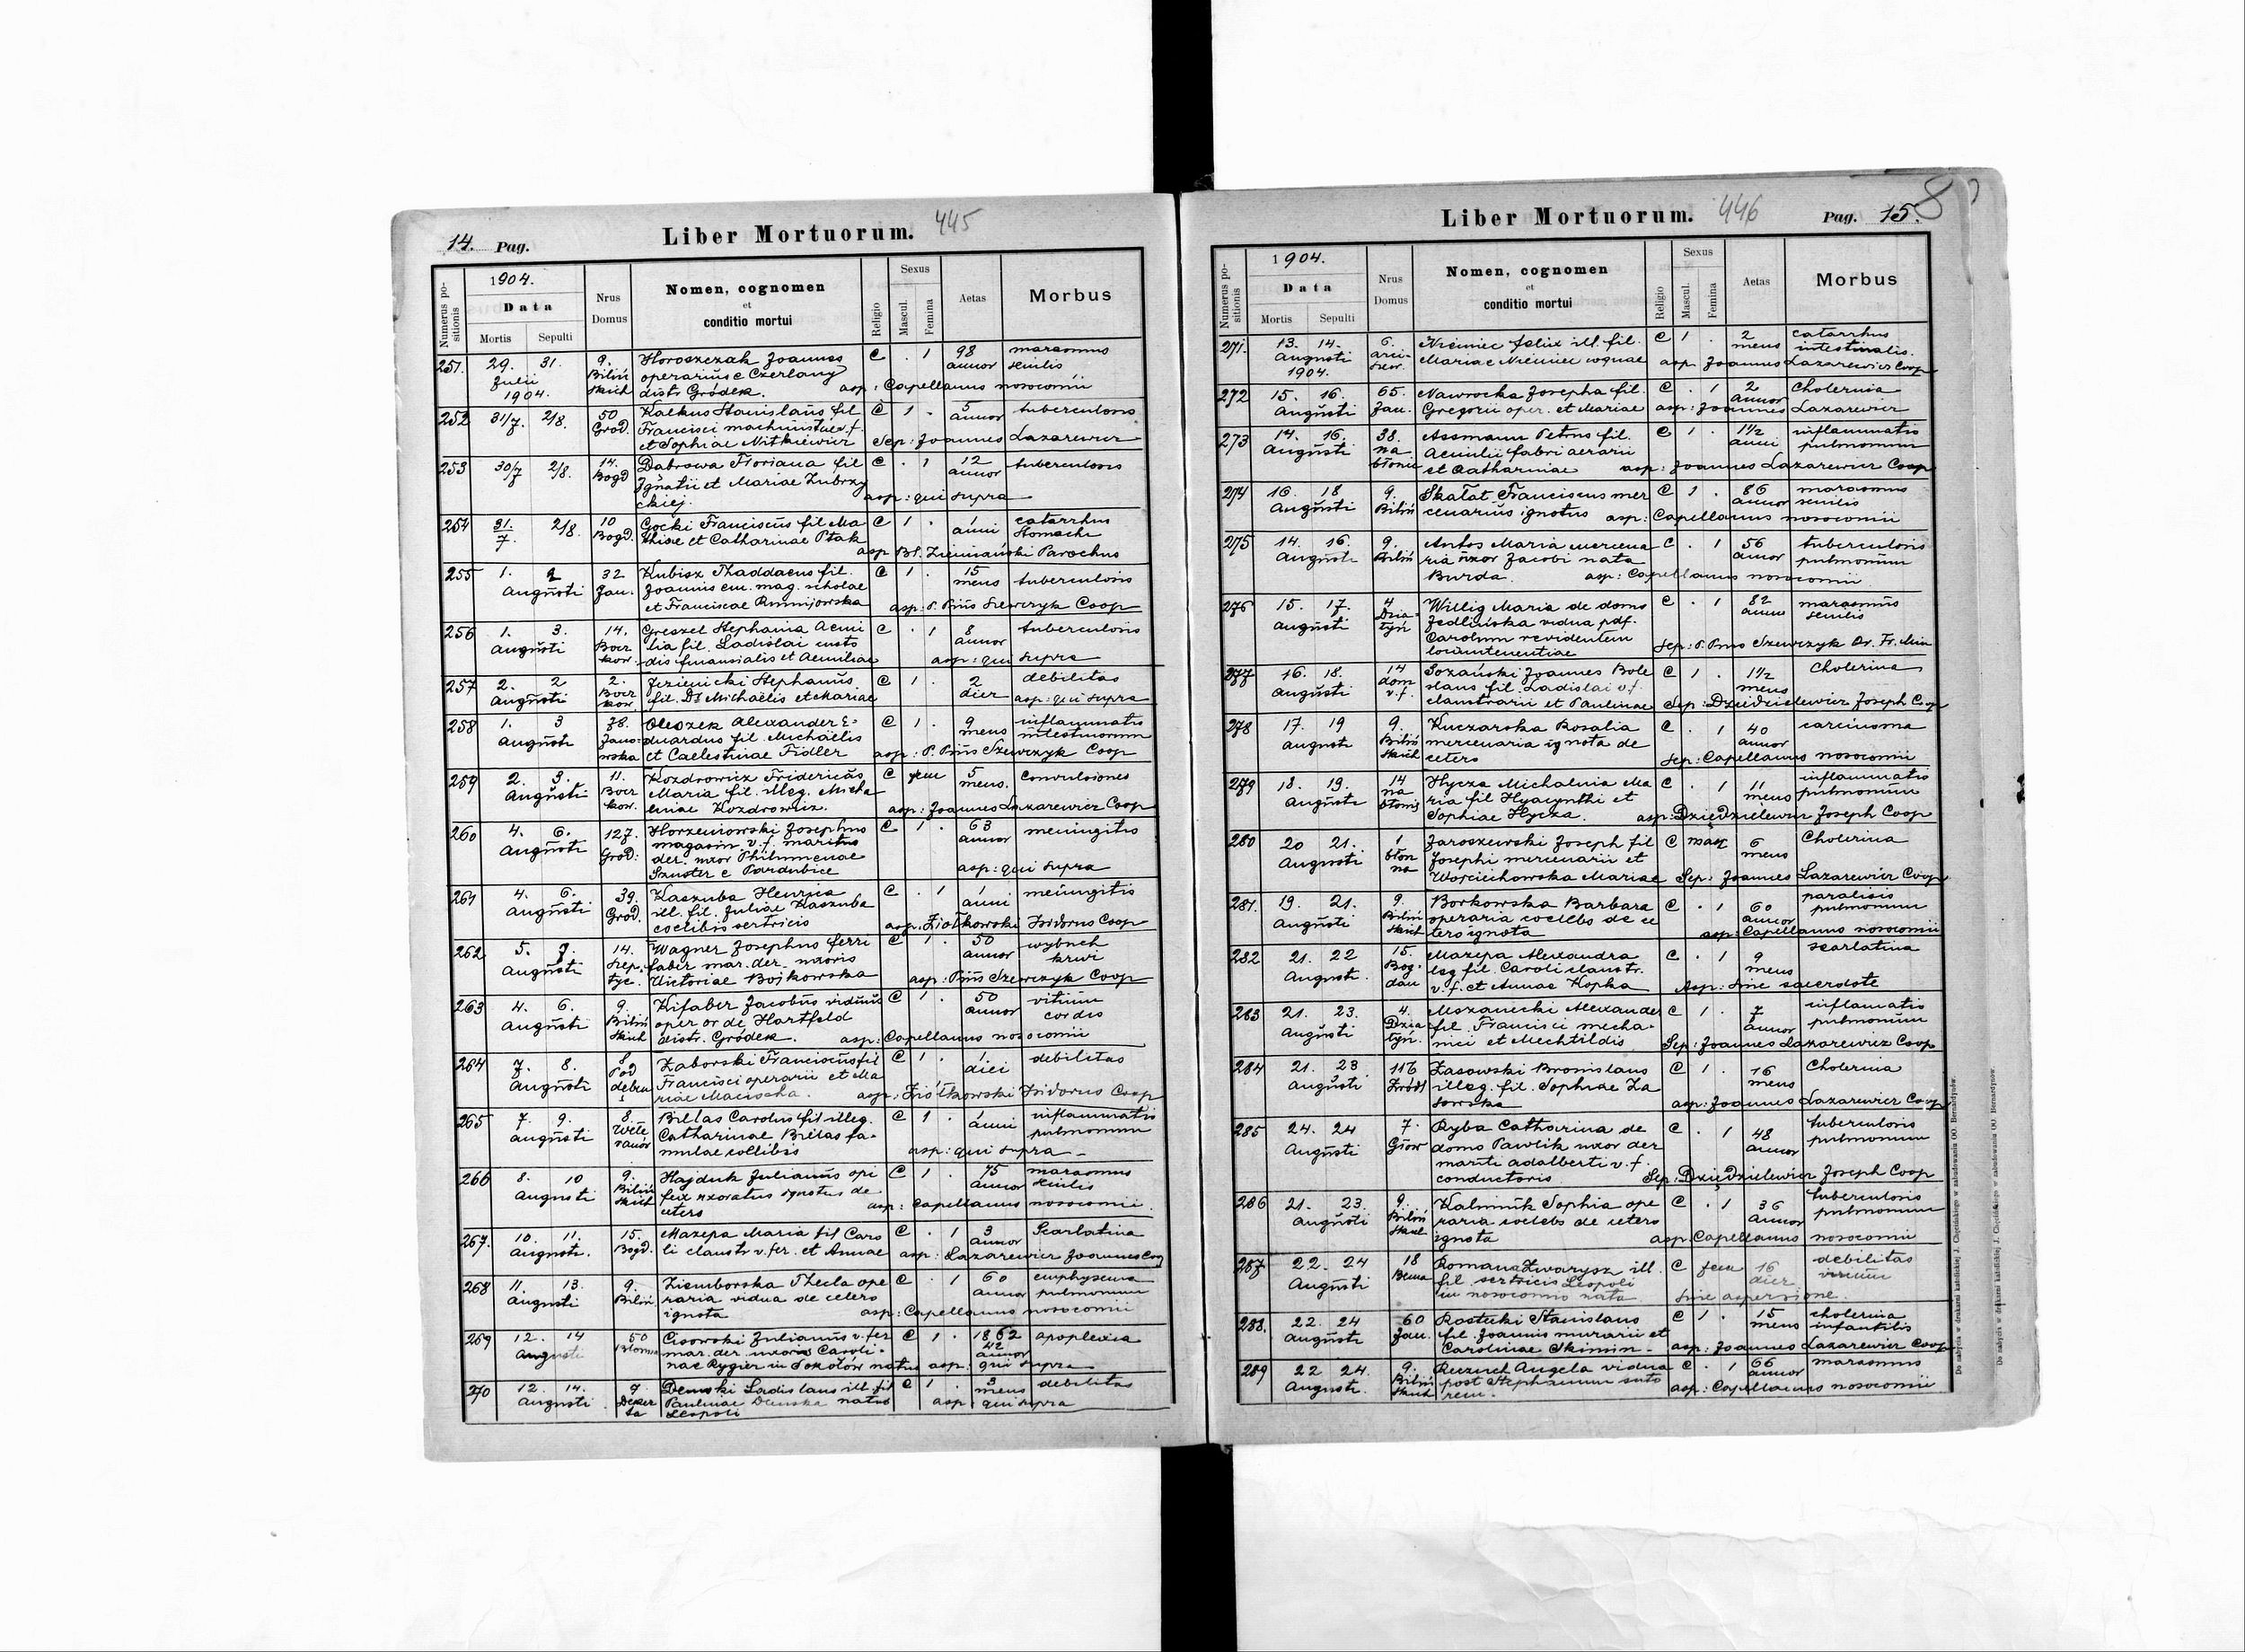 14. Pag.
Liber Mortuorum. 445
Numerus positionis
1904.
Data
Mortis Sepulti
Nrus Domus
Nomen, cognomen
et
conditio mortui
Religio
Sexus
Mascul. Femina
Aetas
Morbus
251. 29. 31. 9. Horoszczak Joannes C . 1 98 marasmus
Julii Biliń operarius e Czerlany annor senilis
1904. skich distr Gródek. asp: Capellanus nosocomii
252 31/7. 2/8. 50 Kaekus Stanislaus fil C 1 . 5 tuberculosis
Grod. Francisci machinistae v.f. annor
et Sophiae Nitkiewicz Sep: Joannes Lazarewicz
253 30/7 2/8. 14. Dabrowa Floriana fil C . 1 12 tuberculosis
Bogd Ignatii et Mariae Zubrzy annor
ckiej. asp: qui supra
254 31. 2/8. 10 Gocki Franciscus fil Ma C 1 . 1 catarrhus
7. Bogd. thiae et Catharinae Ptak anni stomachi
asp Bł. Ziemiański Parochus
255 1. 2 32 Kubisz Thaddaeus fil. C 1 . 15 tuberculosis
Augusti Jan. Joannis em. mag. scholae mens
et Franciscae Rminijowska asp: P. Pius Szewczyk Coop
256 1. 3. 14. Greszel Stephania Aemi C . 1 8 tuberculosis
Augusti Boer lia fil. Ladislai custo annor
kow. dis finansialis et Aemiliae asp: qui supra
257 2. 2 2. Jezienicki Stephanus C 1 . 2 debilitas
Augusti Boer kow. fil. Dr Michaëlis et Mariae dier asp: qui supra
258 1. 3 78. Oleszek Alexander E= C 1 . 9 inflammatio
Augusti Jano= duardus fil Michaëlis mens intestinorum
wska et Caelestinae Fidler asp: P. Pius Szewczyk Coop
259 2. 3. 11. Kozdrowicz Fridericus C fem 5 Convulsiones
Augusti Boer Maria fil. illeg. Micha mens.
kow. linae Kozdrowicz. asp: Joannes Lazarewicz Coop
260 4. 6. 127. Horzeniowski Josephus C 1 . 63 meningitis
Augusti Grod: magasin v.f. maritus annor
der. uxor Philumenae
Szuster e Pardubice asp: qui supra
261 4. 6. 39. Kaszuba Henrica C . 1 1 meningitis
Augusti Grod. ill. fil. Juliae Kaszuba anni
coelibis sertricis asp. Ziołkowski Isidorus Coop
262 5. 7. 14. Wagner Josephus ferri C 1 . 50 wybuch
Augusti Szep= faber mar. der. uxoris annor krwi
tyc. Victoriae Bojkowska asp: Pius Szewczyk Coop
263 4. 6. 9. Kifaber Jacobus viduus C 1 . 50 vitium
Augusti Biliń oper or de Hartfeld annor cordis
skich distr. Gródek. asp: Capellanus nosocomii
264 7. 8. 8 Zaborski Franciscus fil C 1 . 1. debilitas
Augusti Pod Francisci operarii et Ma diei
debem riae Maciocha. asp: Ziółkowski Isidorus Coop
265 7. 9. 8. Billas Carolus fil illeg. C 1 . 1 inflammatio
augusti Wete Catharinae Billas fa= anni pulmonum
ranów mulae coelibis asp: qui supra
266 8. 10 9. Hajduk Julianus opi C 1 . 75 marasmus
Augusti Biliń fex uxoratus ignotus de annor senilis
skich ceters asp: Capellanus nosocomii.
267. 10. 11. 15. Mazepa Maria fil Caro C . 1 3 Scarlatina
Augusti. Bogd. li claustr v. fer. et Annae annor asp: Lazarewicz Joannes Coop
268 11. 13. 9. Ziemborska Thecla ope C . 1 60 emphysema
Augusti Biliń. raria vidua de cetero annor pulmonum
ignota asp: Capellanus nosocomii
269 12. 14 50 Cisowski Julianus v. fer C 1 . 1862 apoplexia
Augusti Błonna mar. der. uxoris Caroli= 42 annor
nae Rygier in Sokołów natus asp: qui supra
270 12. 14. 7 Demski Ladislaus ill. fil C 1 . 3 debilitas
Augusti Dezer Paulinae Demska natus mens
ta Leopoli asp: qui supra
Liber Mortuorum. 446
Pag. 15. 8
Numerus positionis
1904.
Data
Mortis Sepulti
Nrus Domus
Nomen, cognomen
et
conditio mortui
Religio
Sexus
Mascul. Femina
Aetas
Morbus
271. 13. 14. 6. Niemiec Felix ill. fil. C 1 . 2 catarrhus
Augusti arci= Mariae Niemiec coquae mens intestinalis.
1904. szew. asp: Joannes Lazarewicz Coop
272 15. 16. 65. Nawrocka Josepha fil. C . 1 2 Cholerina
Augusti Jan. Gregorii oper. et Mariae annor asp: Joannes Lazarewicz
273 14. 16. 38. Assmann Petrus fil. C 1 . 1 1/2 inflammatio
Augusti na Aemilii fabri aerarii anni pulmonum
błonie et Catharinae asp: Joannes Lazarewicz Coop
274 16. 18 9. Skałat Franciscus mer C 1 . 86 marasmus
Augusti Biliń cenarius ignotus annor senilis
asp: Capellanus nosocomii
275 14. 16. 9. Antos Maria mercena C . 1 56 tuberculosis
Augusti Biliń ria uxor Jacobi nata annor pulmonum
Burda. asp: Capellanus nosocomii
276 15. 17. 4 Willig Maria de domo C . 1 82 marasmus
augusti Dzia= Jedlińska vidua pdf. annor senilis
tyń Carolum revidentem
locumtenentiae Sep: P. Pius Szewczyk Or. Fr. Min
277 16. 18. 14 Sozański Joannes Bole C 1 . 1 1/2 Cholerina
Augusti dom slaus fil. Ladislai v.f. mens
v.f. claustrarii et Paulinae Sep: Dziedzielewicz Joseph Coop
278 17. 19 9. Kuczarska Rosalia C . 1 40 carcinoma
augusti Biliń mercenaria ignota de annor
skich ceters Sep: Capellanus nosocomii
279 18. 19. 14 Hycza Michalina Ma C . 1 11 inflammatio
Augusti na ria fil Hyacynthi et mens pulmonum
błonie Sophiae Hycza. asp: Dziedzielewicz Joseph Coop
280 20 21. 1 Jaroszewski Joseph fil C masc 6 Cholerina
Augusti błon Josephi mercenarii et mens
na Wojciechowska Mariae Sep: Joannes Lazarewicz Coop
281. 19. 21. 9. Borkowska Barbara C . 1 60 paralisis
Augusti Biliń operaria coelebs de ce annor pulmonum
skich ters ignota asp: Capellanus nosocomii
282 21. 22 15. Mazepa Alexandra C . 1 9 scarlatina
Augusti. Bog= leg fil. Caroli claustr. mens
dan v.f. et Annae Kopka Asp: Sine sacerdote
283 21. 23. 4. Mszanecki Alexande C 1 . 7 inflamatio
Augusti Dzia fil. Francisci mecha= annor pulmonum
tyń. nici et Mechtildis Sep: Joannes Lazarewicz Coop
284 21. 23 116 Zasowski Bronislaus C 1 . 16 Cholerina
Augusti Zródl illeg. fil. Sophiae Za mens
sowska asp: Joannes Lazarewicz Coop
285 24. 24 7. Ryba Catharina de C . 1 48 tuberculosis
Augusti Głow domo Pawlik uxor der annor pulmonum
mariti adalberti v.f.
conductoris Sep: Dziedzielewicz Joseph Coop
286 21. 23. 9. Kalmuk Sophia ope C . 1 36 tuberculosis
Augusti Biliń raria coelebs de ceters annor pulmonum
skich ignota asp. Capellanus nosocomii
287 22. 24 18 Romana Zwarysz ill. C fem 16 debilitas
Augusti Bema fil. sertricis Leopoli dier virium
in nosocomio nata Sine aspersione.
288. 22. 24 60 Rostecki Stanislaus C 1 . 15 cholerina
augusti Jan. fil. Joannis murarii et mens infantilis
Carolinae Skimin- asp: Joannes Lazarewicz Coop
289 22 24. 9. Reczuch Angela vidua C . 1 66 marasmus
Augusti. Biliń post Stephanum suto annor
skich rem. asp: Capellanus nosocomii
Do nabycia w drukarni katolickiej J. Chęcińskiego w zabudowaniu OO. Bernardynów.
Do nabycia w drukarni katolickiej J. Chęcińskiego w zabudowaniu OO. Bernardynów.